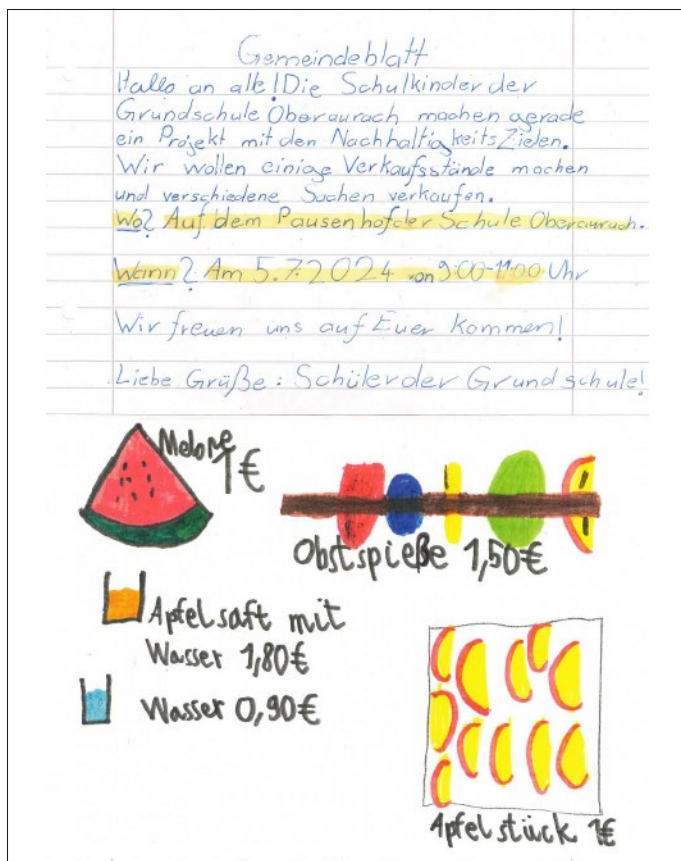 Gemeindeblatt
Hallo an alle! Die Schulkinder der
Grundschule Oberaurach machen gerade
ein Projekt mit den NachhaltigkeitsZielen.
Wir wollen einige Verkaufsstände machen
und verschiedene Sachen verkaufen.
Wo? Auf dem Pausenhof der Schule Oberaurach.
Wann? Am 5.7.2024 von 9:00-11:00 Uhr
Wir freuen uns auf Euer Kommen!
Liebe Grüße: Schüler der Grundschule!
Melone
1€
Obstspieße 1,50€
Apfelsaft mit
Wasser 1,80€
Wasser 0,90€
Apfelstück 1€